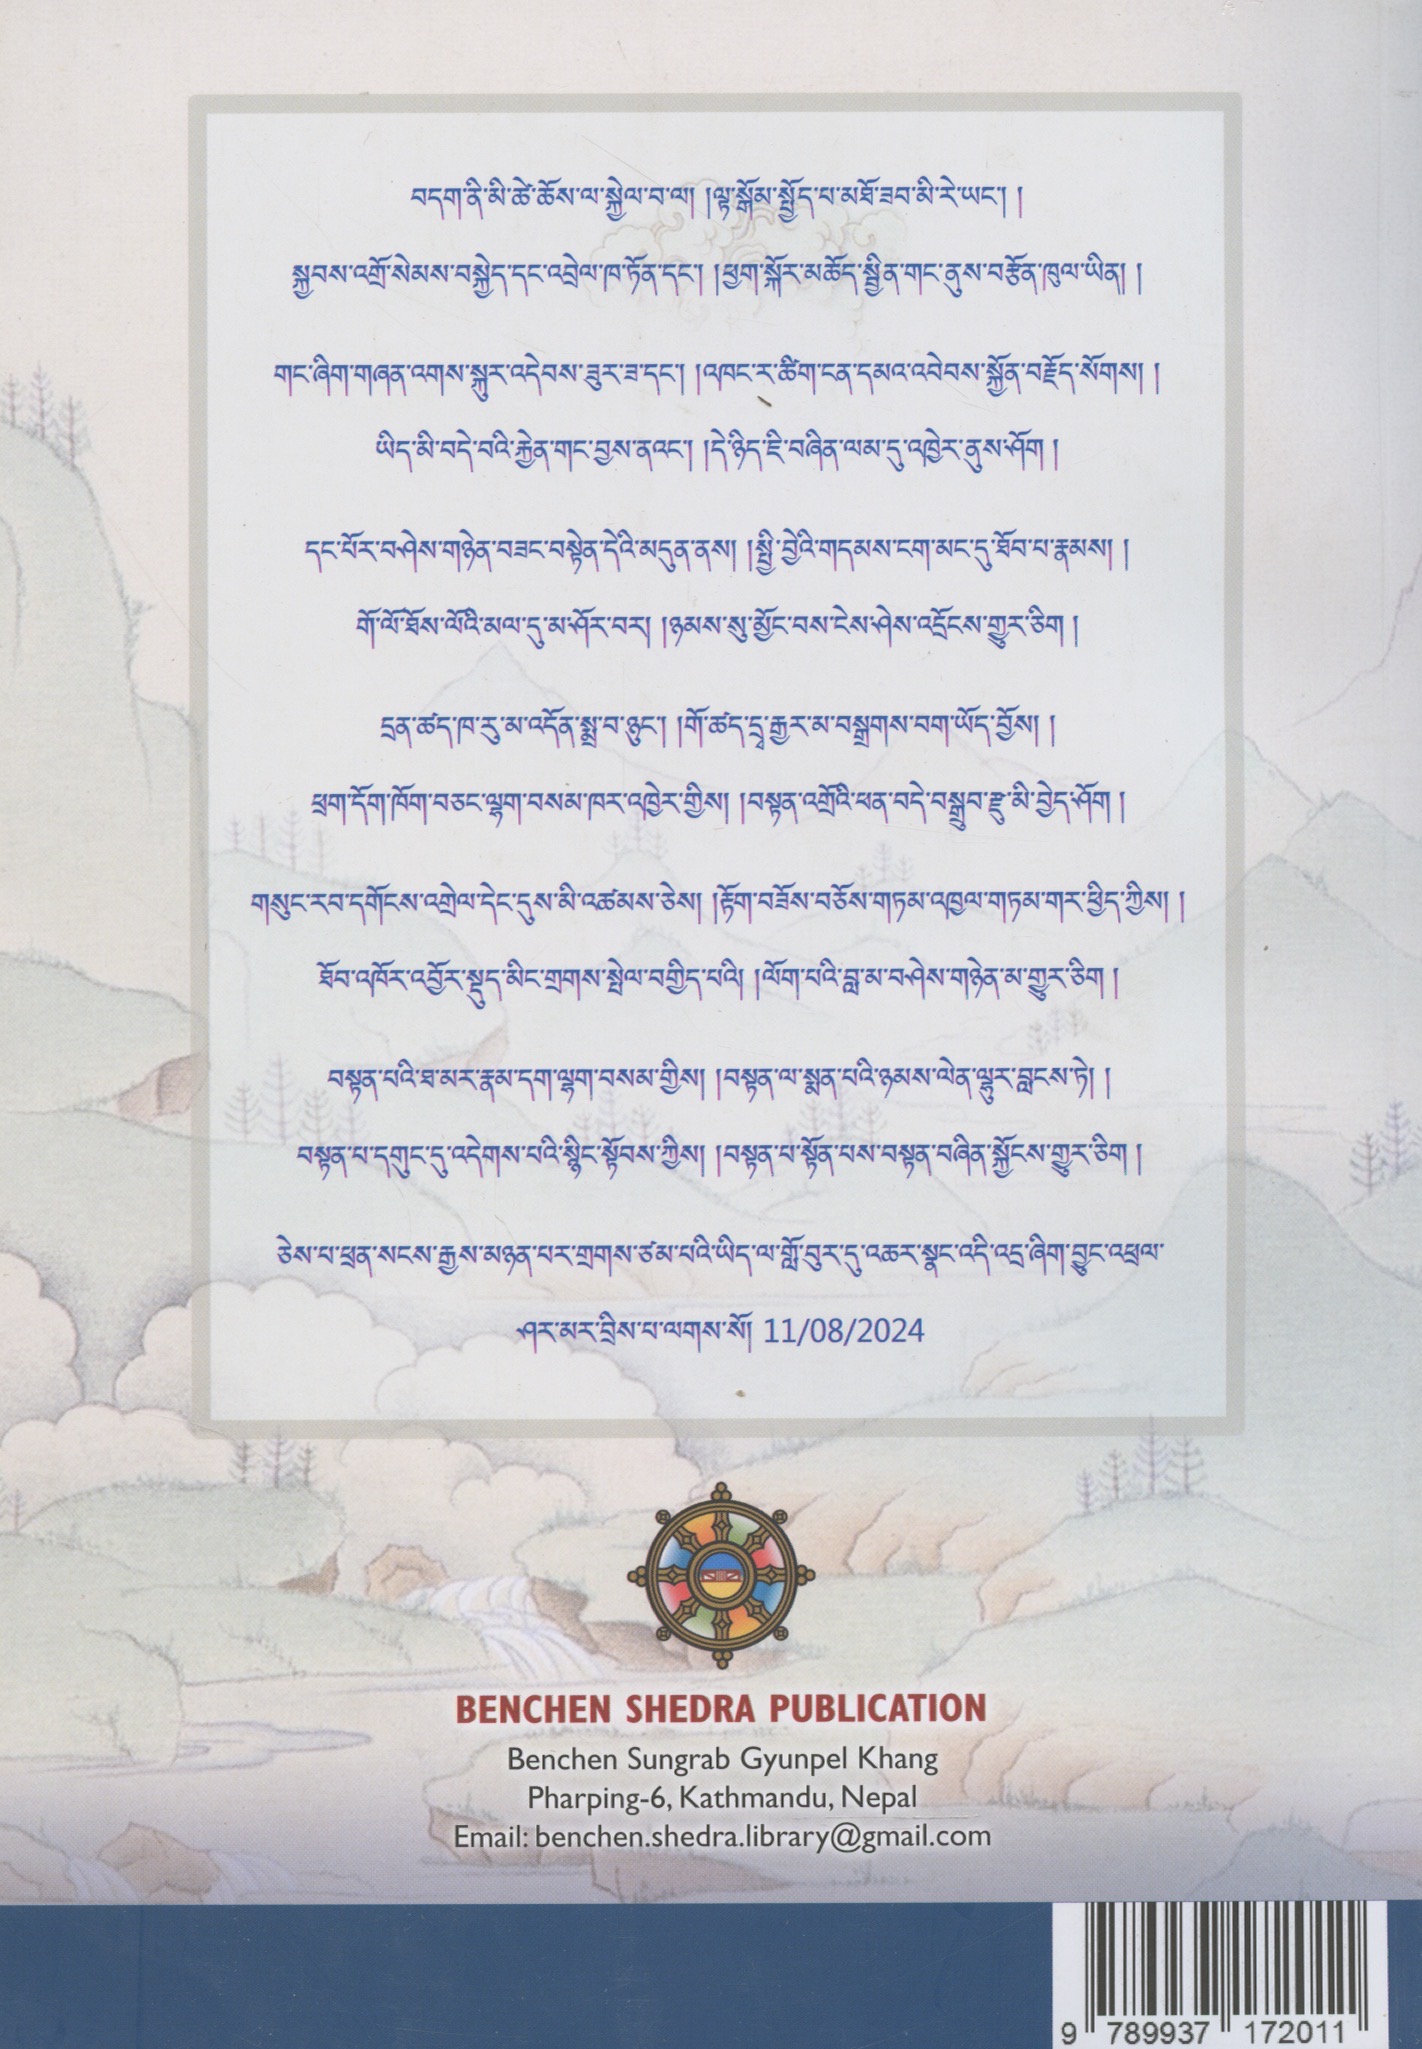 བདག་ནི་མི་ཚེ་ཆོས་ལ་སྐྱེལ་བ་ལ། །ལྟ་སྒོམ་སྤྱོད་པ་མཐོ་ཟབ་མི་རེ་ཡང་། །
སྐྱབས་འགྲོ་སེམས་བསྐྱེད་དང་འབྲེལ་ཁ་ཏོན་དང་། །ཕྱག་སྐོར་མཆོད་སྦྱིན་གང་ནུས་བརྩོན་ཁུལ་ཡིན། །
གང་ཞིག་གཞན་འགས་སྐུར་འདེབས་ཟུར་ཟ་དང་། །འཁང་ར་ཚིག་ངན་དམའ་འབེབས་སྐྱོན་བརྗོད་སོགས། །
ཡིད་མི་བདེ་བའི་རྐྱེན་གང་བྱས་ནའང་། །དེ་ཉིད་ཇི་བཞིན་ལམ་དུ་འཁྱེར་ནུས་ཤོག །
དང་པོར་བཤེས་གཉེན་བཟང་བསྟེན་དེའི་མདུན་ནས། །སྤྱི་བྱེའི་གདམས་ངག་མང་དུ་ཐོབ་པ་རྣམས། །
གོ་ལོ་ཐོས་ལོའི་མལ་དུ་མ་ཤོར་བར། །ཉམས་སུ་མྱོང་བས་ངེས་ཤེས་འདྲོངས་གྱུར་ཅིག །
དྲན་ཚད་ཁ་རུ་མ་འདོན་སྨྲ་བ་ཉུང་། །གོ་ཚད་དྲྭ་རྒྱར་མ་བསྒྲགས་བག་ཡོད་བྱོས། །
ཕྲག་དོག་ཁོག་བཅང་ལྷག་བསམ་ཁར་འཁྱེར་གྱིས། །བསྟན་འགྲོའི་ཕན་བདེ་བསྒྲུབ་རྫུ་མི་བྱེད་ཤོག །
གསུང་རབ་དགོངས་འགྲེལ་དེང་དུས་མི་འཚམས་ཅེས། །རྟོག་བཟོས་བཅོས་གཏམ་འཁྱལ་གཏམ་གར་ཕྱིད་ཀྱིས། །
ཐོབ་འཁོར་འབྱོར་སྡུད་མིང་གྲགས་སྤེལ་བགྱིད་པའི། །ལོག་པའི་བླ་མ་བཤེས་གཉེན་མ་གྱུར་ཅིག །
བསྟན་པའི་ཐ་མར་རྣམ་དག་ལྷག་བསམ་གྱིས། །བསྟན་ལ་སྨན་པའི་ཉམས་ལེན་ལྷུར་བླངས་ཏེ། །
བསྟན་པ་དགུང་དུ་འདེགས་པའི་སྙིང་སྟོབས་ཀྱིས། །བསྟན་པ་སྟོན་པས་བསྟན་བཞིན་སྐྱོངས་གྱུར་ཅིག །
ཅེས་པ་ཕྲན་སངས་རྒྱས་མཉན་པར་གྲགས་ཙམ་པའི་ཡིད་ལ་གློ་བུར་དུ་འཆར་སྣང་འདི་འདྲ་ཞིག་བྱུང་འཕྲལ་
ཤར་མར་བྲིས་པ་ལགས་སོ། 11/08/2024
BENCHEN SHEDRA PUBLICATION
Benchen Sungrab Gyunpel Khang
Pharping-6, Kathmandu, Nepal
Email: benchen.shedra.library@gmail.com
9 789937 172011